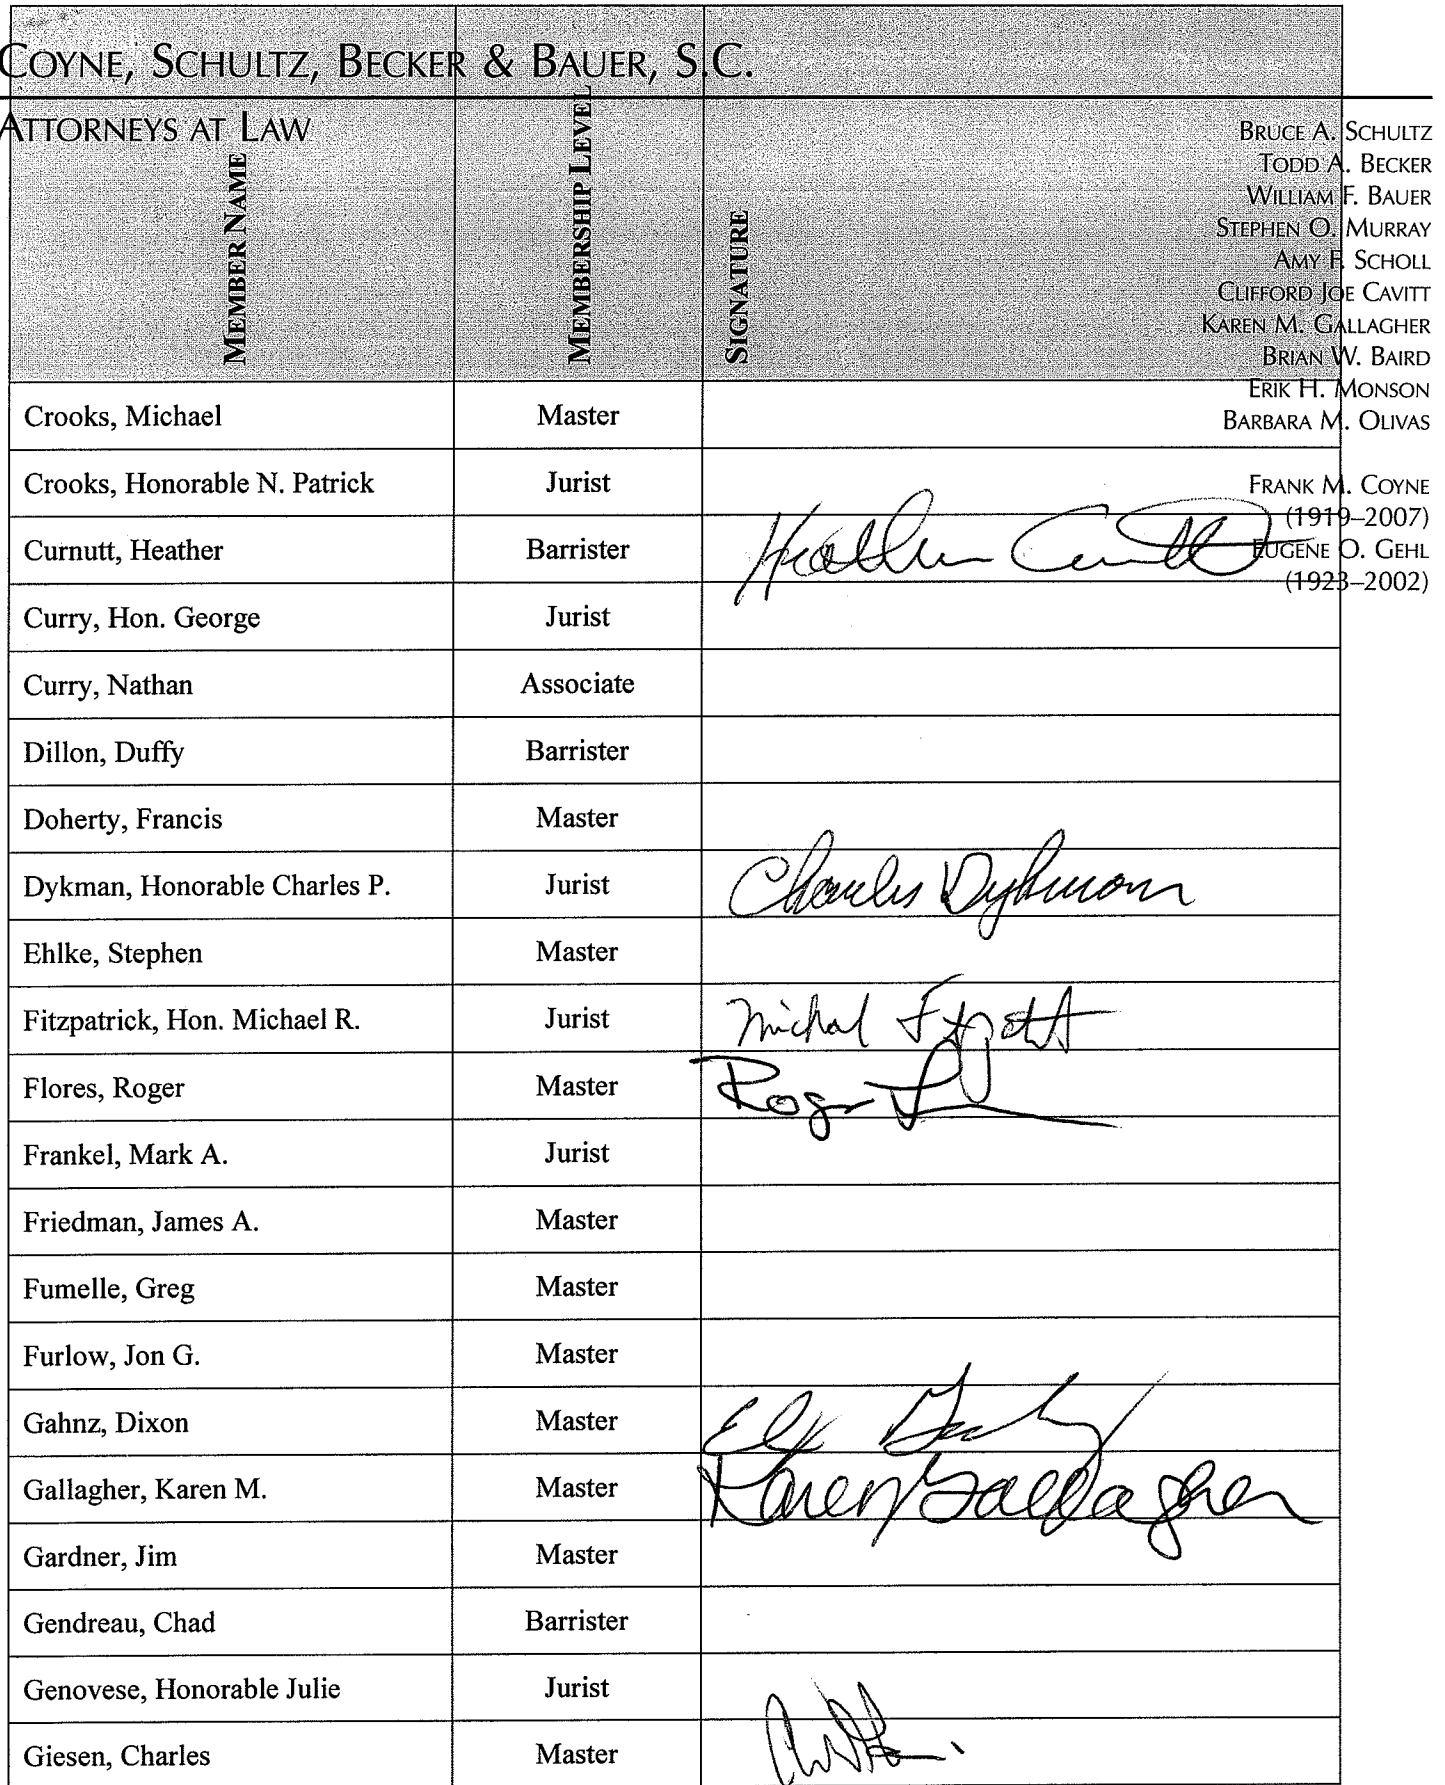 COYNE, SCHULTZ, BECKER & BAUER, S.C.
ATTORNEYS AT LAW
BRUCE A. SCHULTZ
TODD A. BECKER
WILLIAM F. BAUER
STEPHEN O. MURRAY
AMY F. SCHOLL
CLIFFORD JOE CAVITT
KAREN M. GALLAGHER
BRIAN W. BAIRD
ERIK H. MONSON
BARBARA M. OLIVAS
FRANK M. COYNE
(1919–2007)
EUGENE O. GEHL
(1923–2002)
MEMBER NAME MEMBERSHIP LEVEL SIGNATURE
Crooks, Michael Master
Crooks, Honorable N. Patrick Jurist
Curnutt, Heather Barrister Heather Curnutt
Curry, Hon. George Jurist
Curry, Nathan Associate
Dillon, Duffy Barrister
Doherty, Francis Master
Dykman, Honorable Charles P. Jurist Charles Dykman
Ehlke, Stephen Master
Fitzpatrick, Hon. Michael R. Jurist Michael Fitzpatrick
Flores, Roger Master Roger
Frankel, Mark A. Jurist
Friedman, James A. Master
Fumelle, Greg Master
Furlow, Jon G. Master
Gahnz, Dixon Master
Gallagher, Karen M. Master Karen Gallagher
Gardner, Jim Master
Gendreau, Chad Barrister
Genovese, Honorable Julie Jurist
Giesen, Charles Master